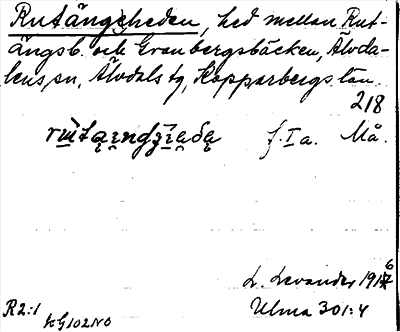 Rutängsheden, hed mellan Rut-
ängsb. och Granbergsbäcken, Älvda-
lens sn, Älvdals tg, Kopparbergs län.
218
f. Ia. Må.
L. Levander 1916
R2:1 kG102NO Ulma 301:4